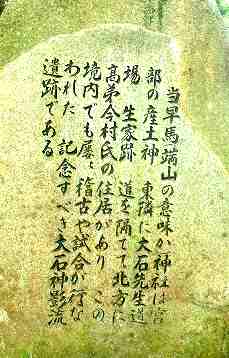 当早馬端山の意味か神社は宮
部の産土神　東隣に大石先生道
場　生家跡　道を隔てて北方に
高弟今村氏の住居があり　この
境内でも屡々稽古や試合が行な
われた　記念すべき大石神影流
遺跡である